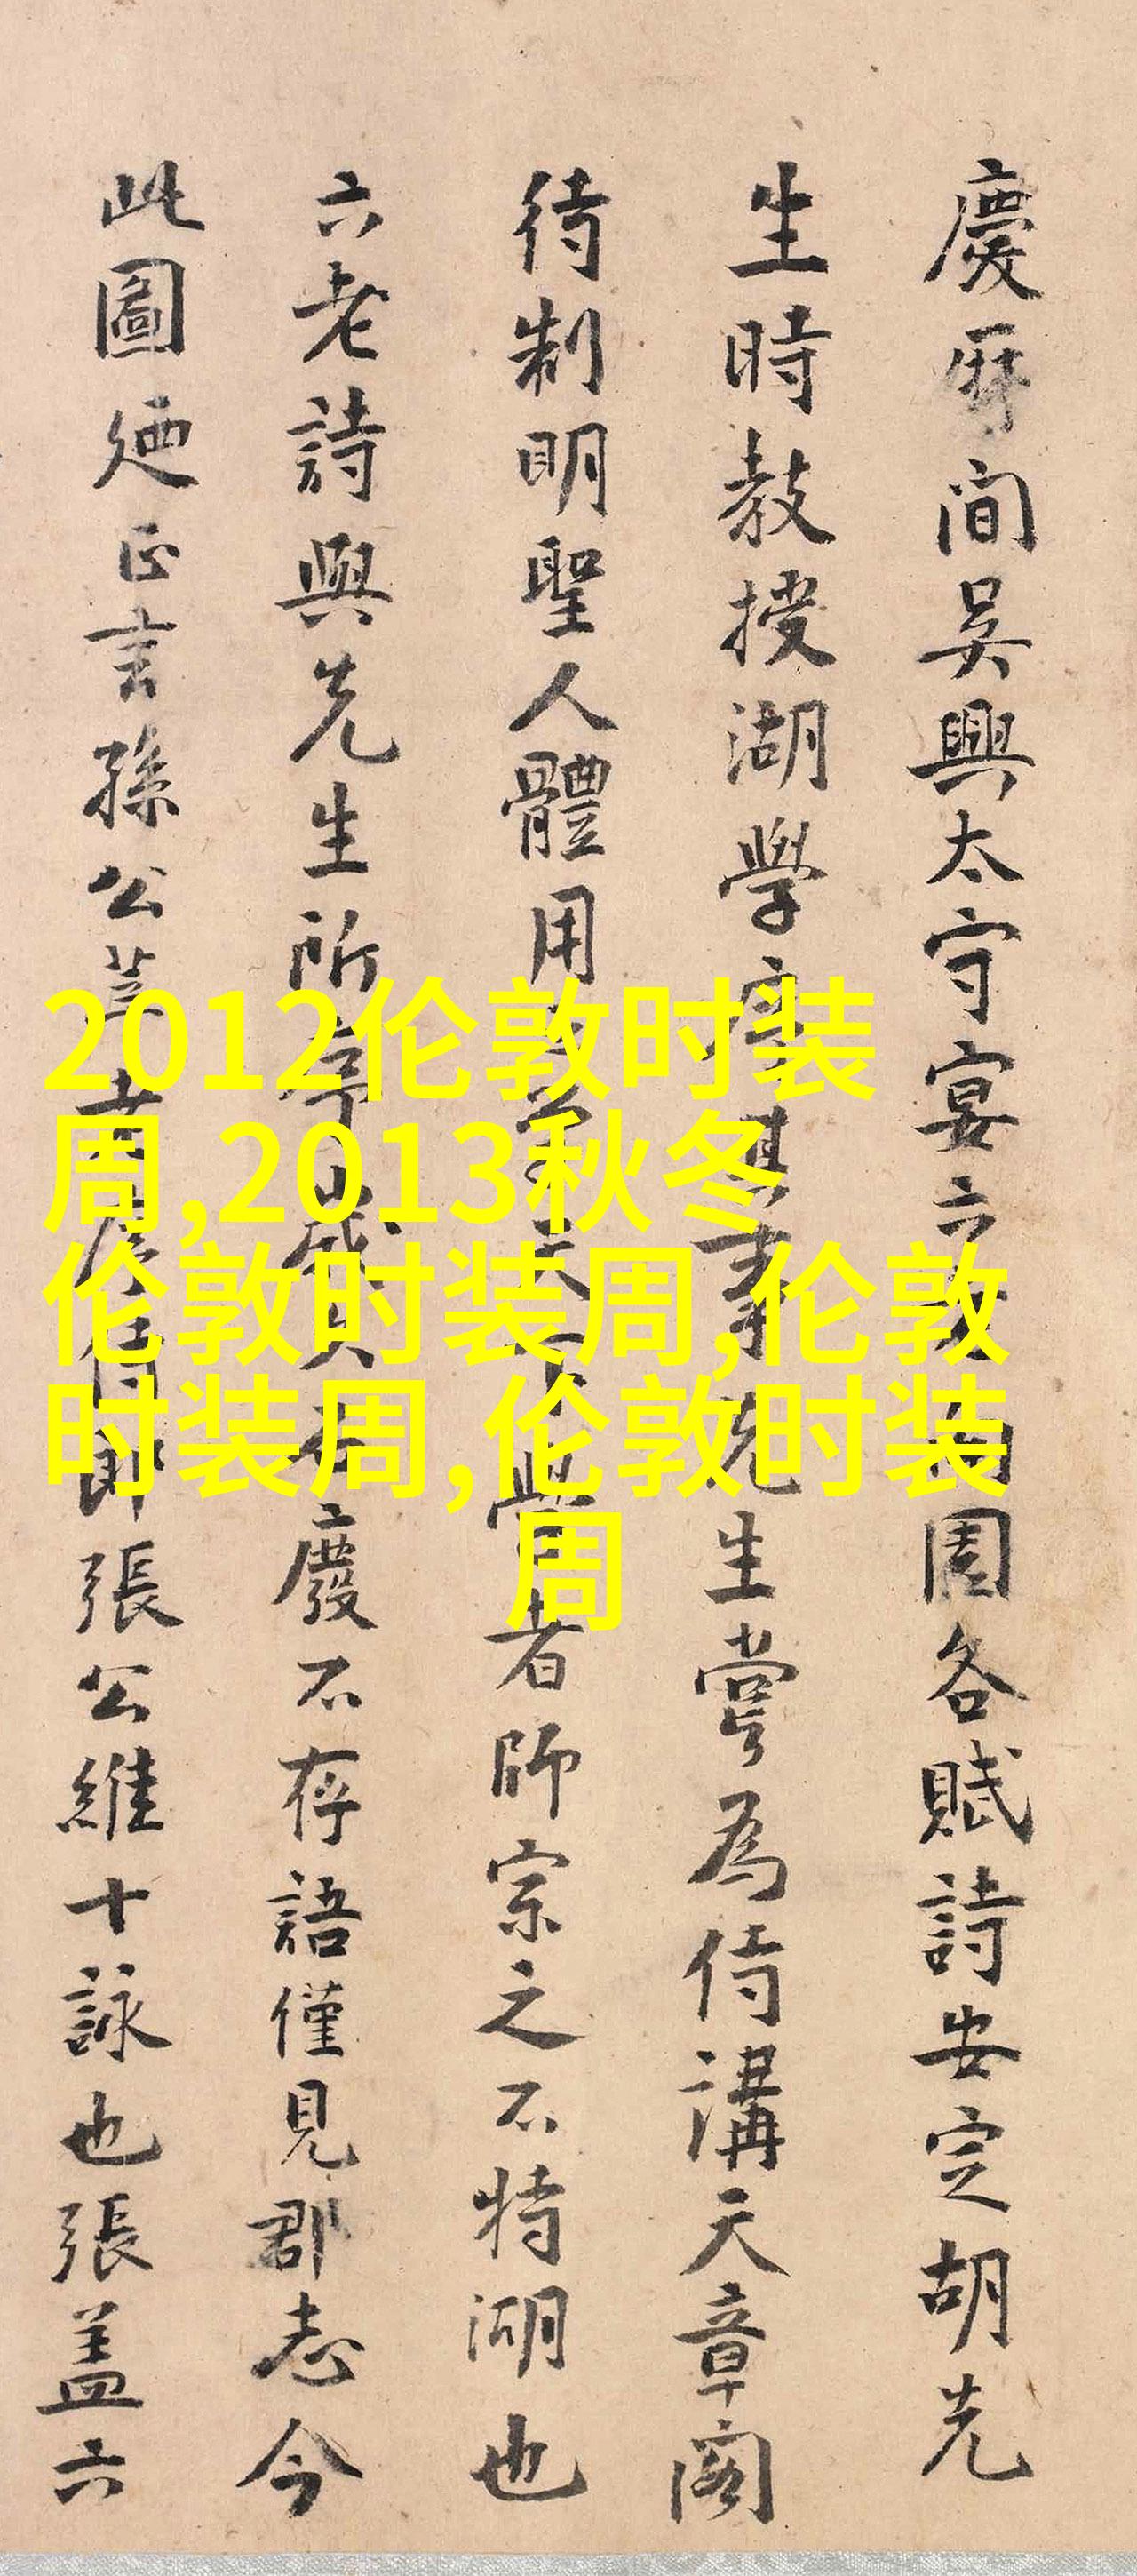 慶曆間吳興太守宴六老南園各賦詩安定胡先
生時教授湖學序其事先生嘗為侍講天章閣
待制明聖人體用天學者師宗之不特湖也
六老詩與先生所序咸廢不存語僅見郡志今
此圖廼正言孫公侍郎張公維十詠也張蓋六
2012伦敦时装
周,2013秋冬
伦敦时装周,伦敦
时装周,伦敦时装
周